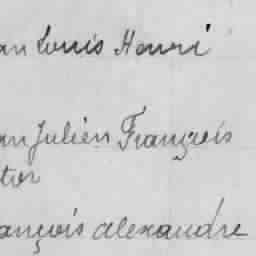 an Louis Henri
an Julien François
tor
ançois alexandre